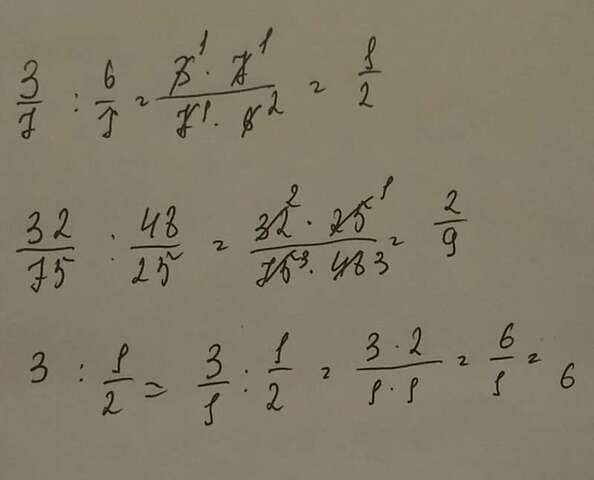 3/7 : 6/7 = 3¹ · 7¹ / 7¹ · 6² = 1/2
32/75 : 48/25 = 32² · 25¹ / 75³ · 48³ = 2/9
3 : 1/2 = 3/1 : 1/2 = 3 · 2 / 1 · 1 = 6/1 = 6